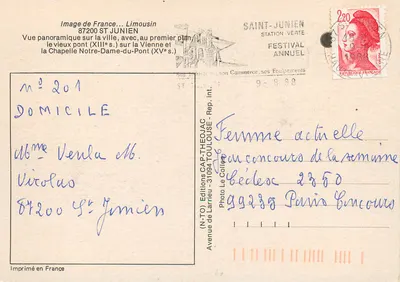 Image de France... Limousin
87200 ST JUNIEN
Vue panoramique sur la ville, avec, au premier plan,
le vieux pont (XIIIe s.) sur la Vienne et
la Chapelle Notre-Dame-du-Pont (XVe s.)
SAINT-JUNIEN
STATION VERTE
FESTIVAL
ANNUEL
2,20
n° 201
DOMICILE
Mme Venla M.
Nicolas
87200 St Junien
(N-TO) Editions CAP-THEOJAC
Avenue de Larrieu - 31094 TOULOUSE - Rep. Int.
Photo Le Collen
Femme actuelle
Concours de la semaine
Cédex 2350
99239 Paris Concours
Imprimé en France